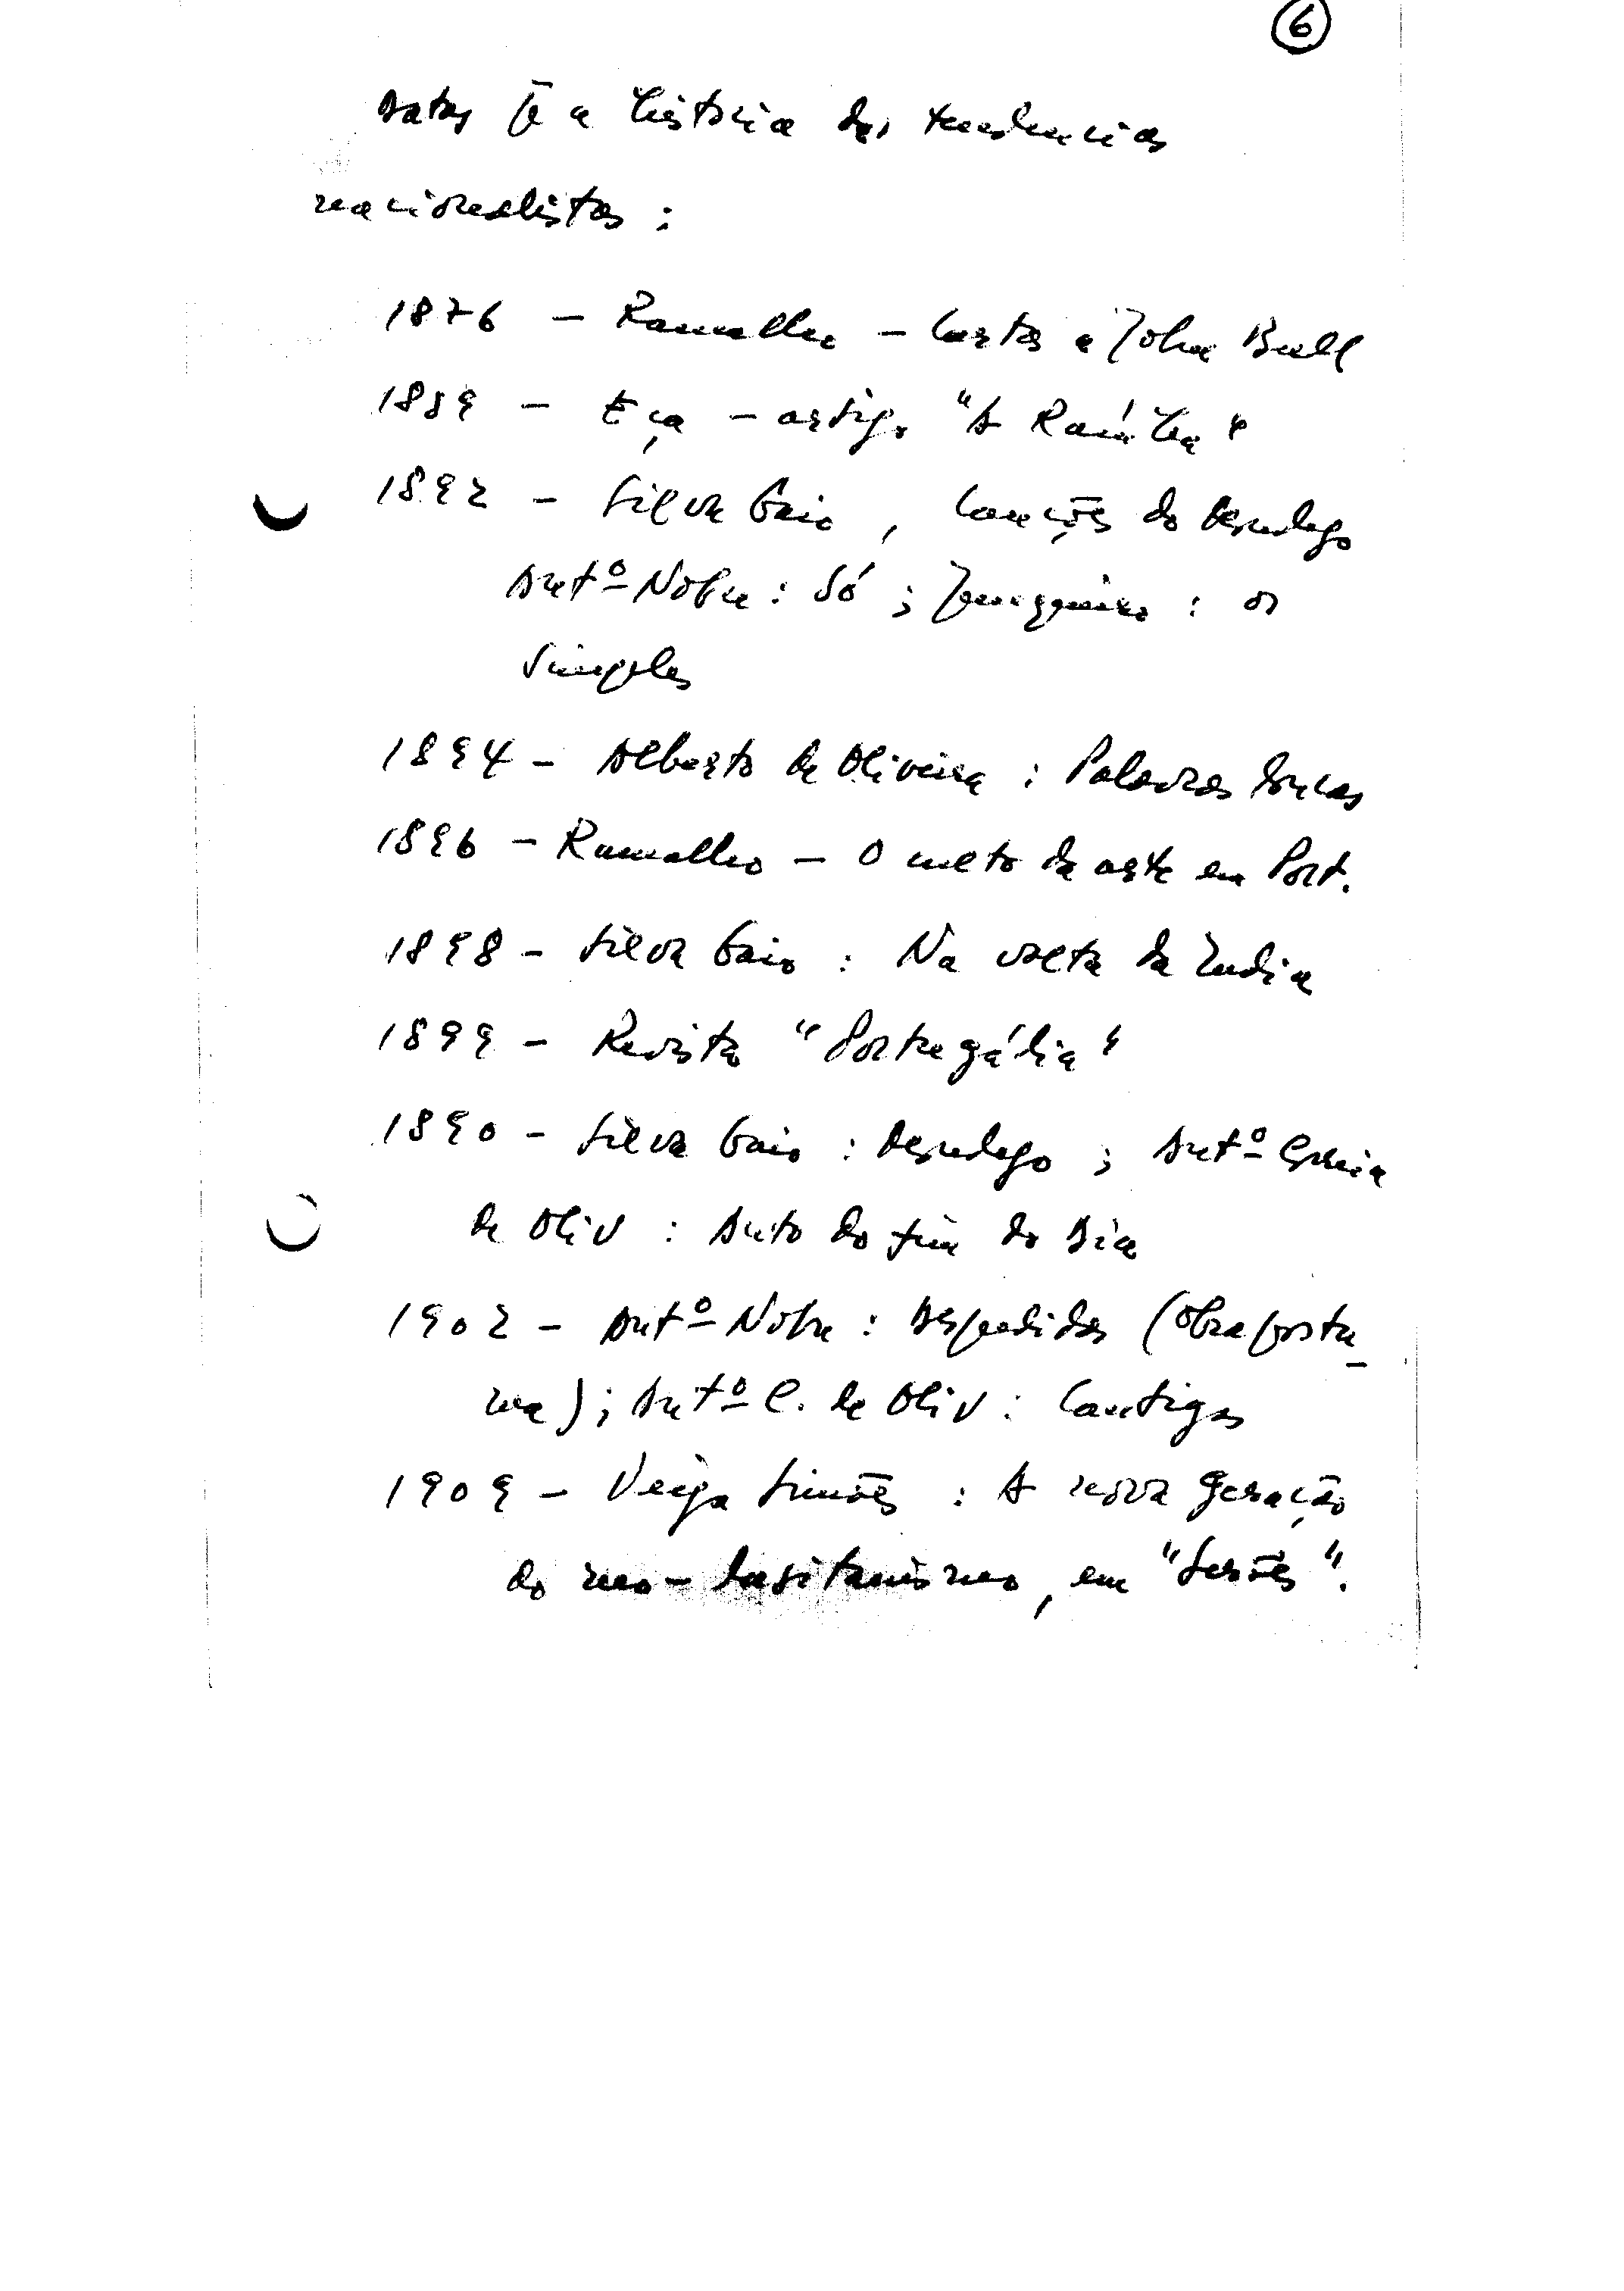 6
Datas p̄ a história das tendencias
nacionalistas :
1876 – Ramalho – Cartas a John Bull
1889 – Eça – artigo "A Raínha"
1892 – Silva Gaio, Canções do Mondego
Antº Nobre : Só ; Junqueiro : os
Simples
1894 – Alberto de Oliveira : Palavras loucas
1896 – Ramalho – O culto da arte em Port.
1898 – Silva Gaio : Na volta da India
1899 – Revista "Portugália"
1890 – Silva Gaio : Mondego ; Antº Correia
de Oliv : Auto do fim do Dia
1902 – Antº Nobre : Despedidas (obra postu-
ma) ; Antº C. de Oliv : Cantigas
1909 – Veiga Simões : A nova geração
do neo-lusitanismo, em "Serões".